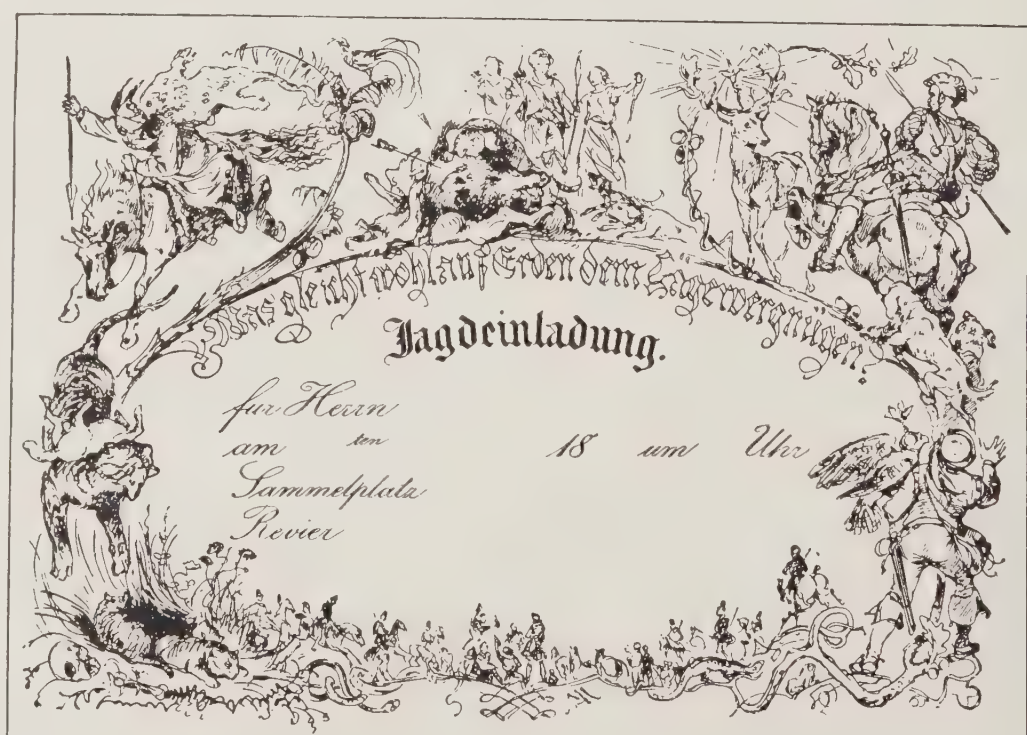 Was gleicht wohl auf Erden dem Jägervergnügen.
Jagdeinladung.
für Herrn
am ten 18 um Uhr
Sammelplatz
Revier